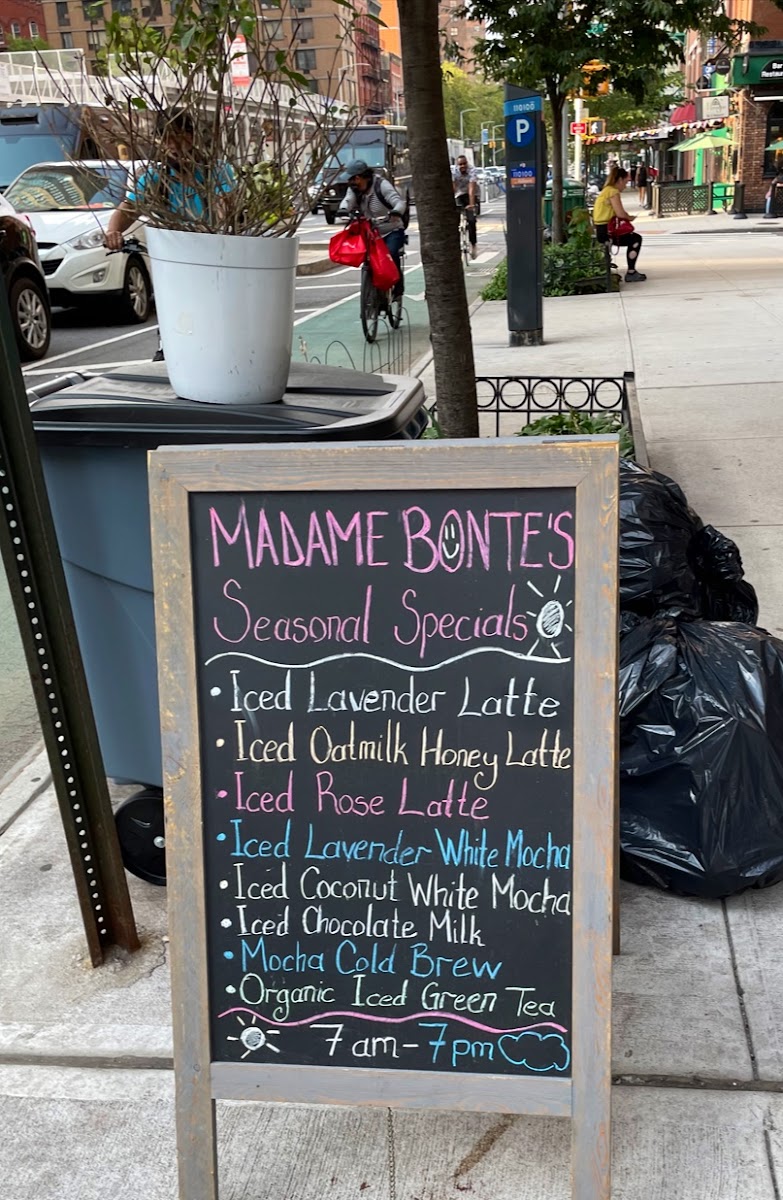 110100
P
110100
Bar
MADAME BONTE'S
Seasonal Specials
• Iced Lavender Latte
• Iced Oatmilk Honey Latte
• Iced Rose Latte
• Iced Lavender White Mocha
• Iced Coconut White Mocha
• Iced Chocolate Milk
• Mocha Cold Brew
• Organic Iced Green Tea
7am-7pm